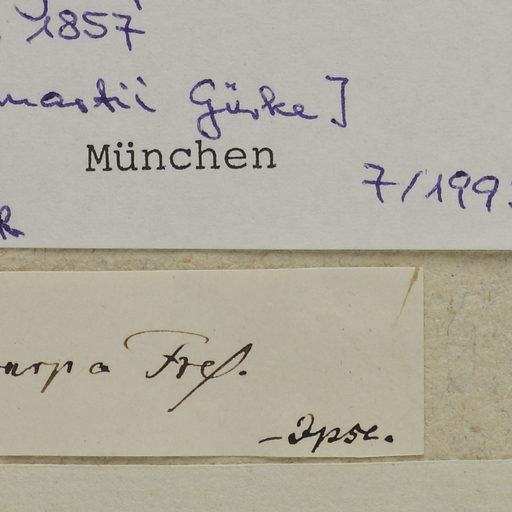 1857
martii Gürke]
München
7/199
urpa Fres.
- Ipse.